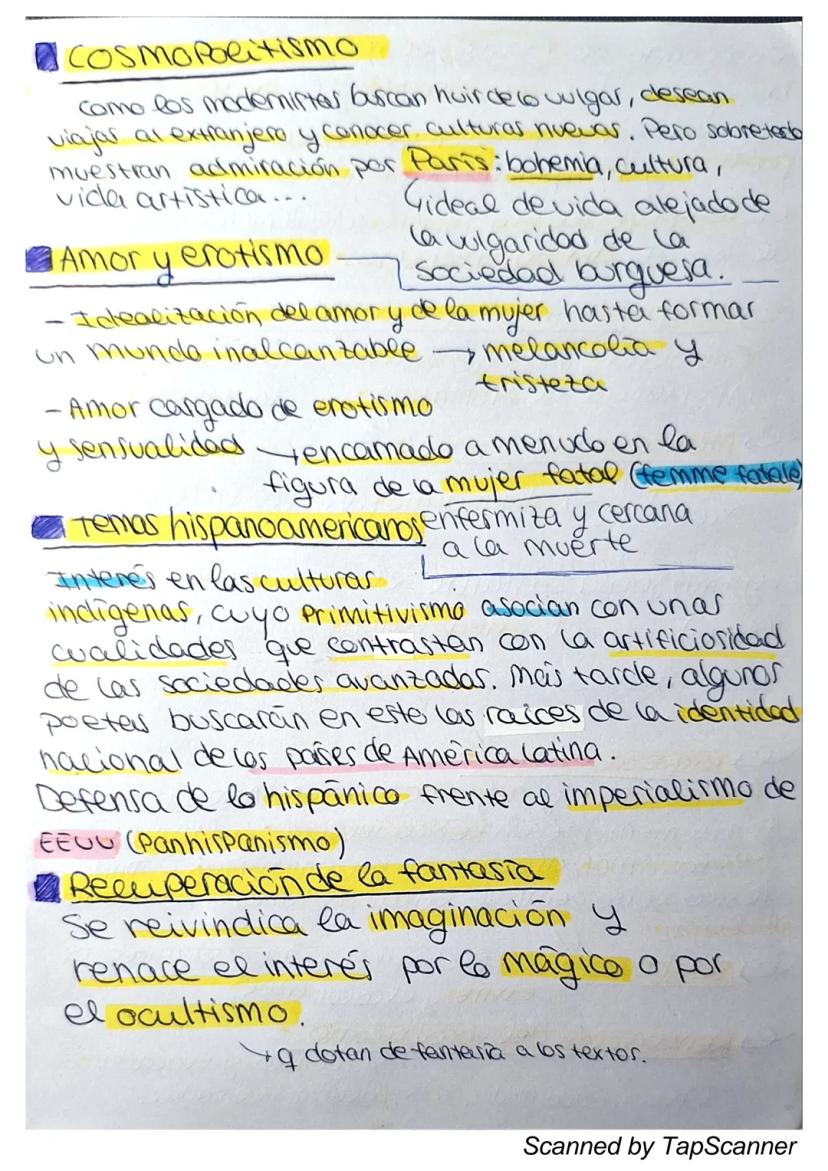 COSMOPOLITISMO
Como los modernistas buscan huir de lo vulgar, desean
viajas al extranjero y conocer culturas nuevas. Pero sobretodo
muestran admiración por París: bohemia, cultura,
vida artística...
↳ ideal de vida alejado de
la vulgaridad de la
sociedad burguesa.
Amor y erotismo
- Idealización del amor y de la mujer hasta formar
un mundo inalcanzable → melancolía y
tristeza
- Amor cargado de erotismo
y sensualidad → encarnado a menudo en la
figura de la mujer fatal (femme fatale)
enfermiza y cercana
a la muerte
Temas hispanoamericanos
Interés en las culturas
indígenas, cuyo primitivismo asocian con unas
cualidades que contrasten con la artificiosidad
de las sociedades avanzadas. Más tarde, algunos
poetas buscarán en este las raíces de la identidad
nacional de los países de América Latina.
Defensa de lo hispánico frente al imperialismo de
EEUU (Panhispanismo)
Recuperación de la fantasía
Se reivindica la imaginación y
renace el interés por lo mágico o por
el ocultismo.
↳ q dotan de fantasía a los textos.
Scanned by TapScanner